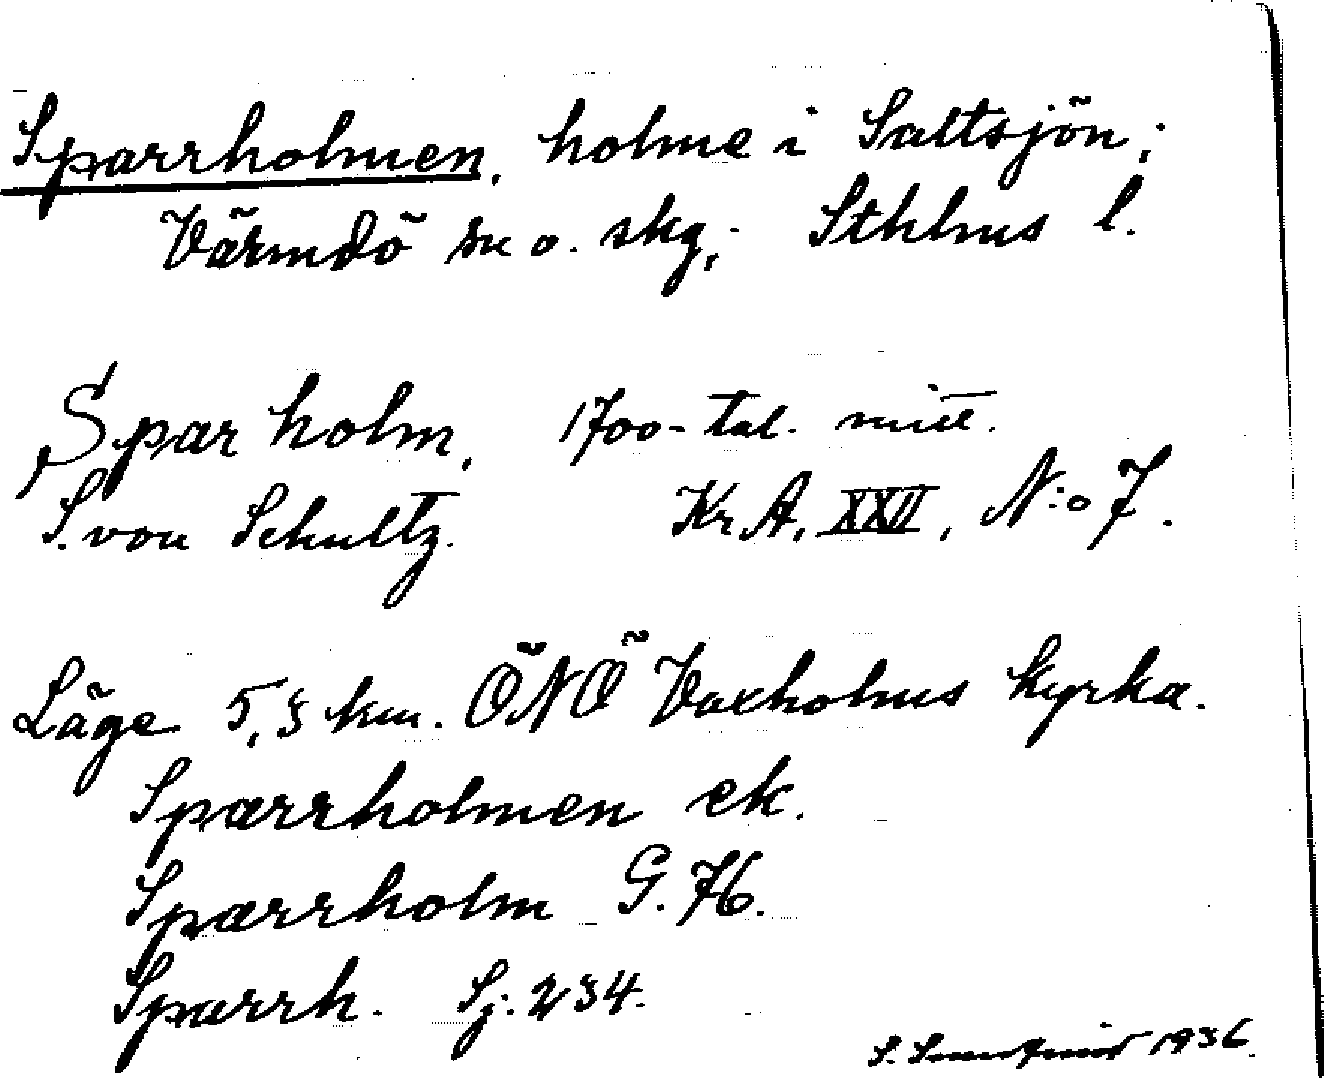 Sparrholmen, holme i Saltsjön;
Värmdö sn o. skg; Sthlms l.
Sparholm, 1700-tal. mitt.
S. von Schultz. Kr A, XXII, N:o 7.
Läge 5,3 km. ÖNÖ Vaxholms kyrka.
Sparrholmen ek.
Sparrholm G. 76.
Sparrh. Sj. 234.
S. 1936.